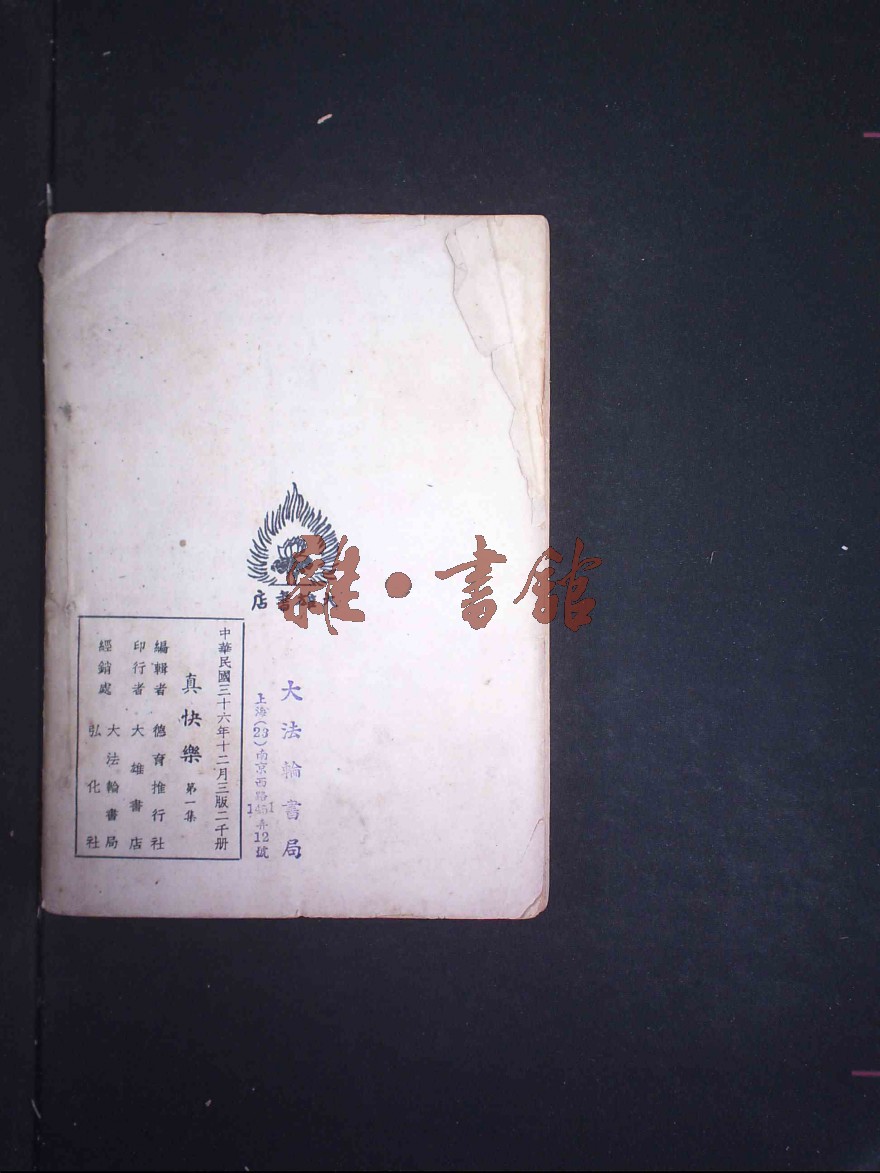 雜·書舘
大雄書店
大法輪書局
上海(23)南京西路
弄12號
中華民國三十六年十二月三版二千册
真快樂 第一集
編輯者 德育推行社
印行者 大雄書店
經銷處 大法輪書局
弘化社